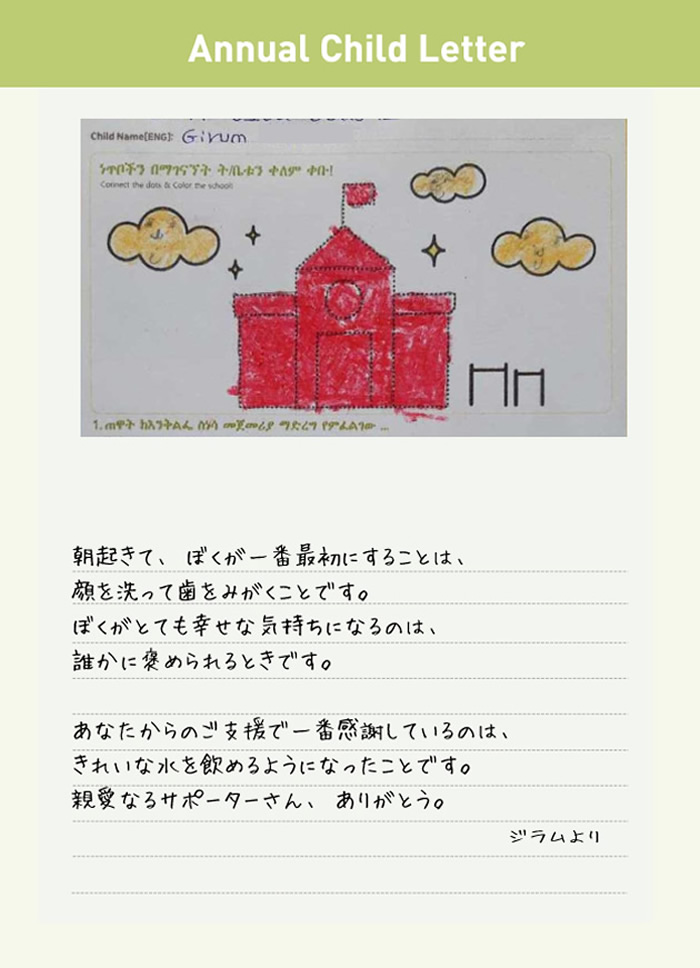 Annual Child Letter
Child Name[ENG]: Girum
ነጥቦችን በማገናኘት ት/ቤቱን ቀለም ቀቡ!
Connect the dots & Color the school!
1. ጠዋት ከእንቅልፌ ስነሳ መጀመሪያ ማድረግ የምፈልገው ...
朝起きて、ぼくが一番最初にすることは、
顔を洗って歯をみがくことです。
ぼくがとても幸せな気持ちになるのは、
誰かに褒められるときです。
あなたからのご支援で一番感謝しているのは、
きれいな水を飲めるようになったことです。
親愛なるサポーターさん、ありがとう。
ジラムより